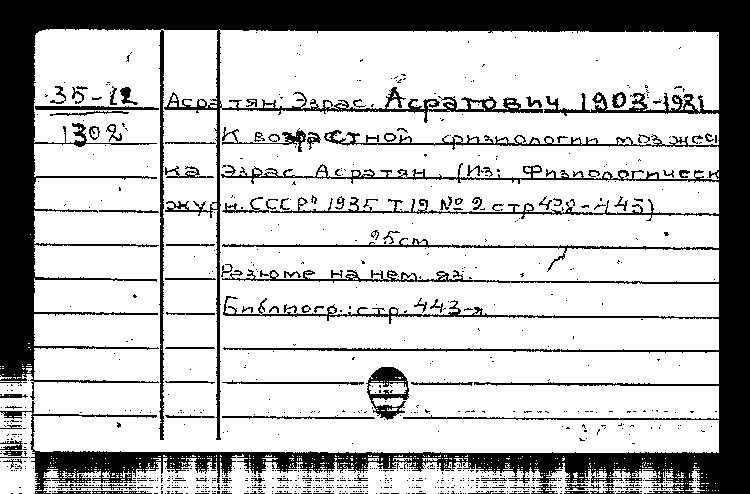 35-12 Асратян, Эзрас Асратович, 1903-1981
1302 К возрастной физиологии мозжеч
ка Эзрас Асратян. (Из: „Физиологическ
журн. СССР" 1935 Т.19 № 2 стр 438-445)
25см
Резюме на нем. яз.
Библиогр.: стр. 443-я